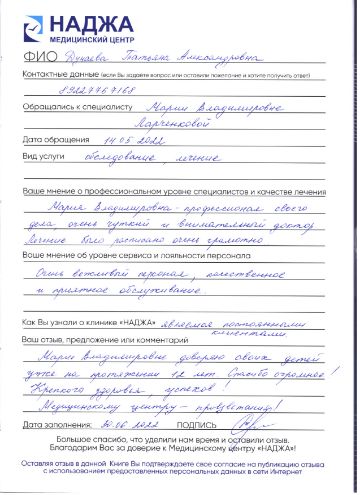 НАДЖА
МЕДИЦИНСКИЙ ЦЕНТР
ФИО Дунаева Татьяна Александровна
Контактные данные (если Вы задаёте вопрос или оставили пожелание и хотите получить ответ)
89227767168
Обращались к специалисту Марии Владимировне
Ларченковой
Дата обращения 14.05.2022
Вид услуги обследование, лечение
Ваше мнение о профессиональном уровне специалистов и качестве лечения
Мария Владимировна - профессионал своего
дела очень чуткий и внимательный доктор
Лечение было расписано очень грамотно
Ваше мнение об уровне сервиса и лояльности персонала
Очень вежливый персонал, качественное
и приятное обслуживание.
Как Вы узнали о клинике «НАДЖА» являемся постоянными
клиентами.
Ваш отзыв, предложение или комментарий
Марии Владимировне доверяю своих детей
уже на протяжении 12 лет. Спасибо огромное!
Крепкого здоровья, успехов!
Медицинскому центру - процветания!
Дата заполнения: 20.06.2022 ПОДПИСЬ
Большое спасибо, что уделили нам время и оставили отзыв.
Благодарим Вас за доверие к Медицинскому центру «НАДЖА»!
Оставляя отзыв в данной Книге Вы подтверждаете свое согласие на публикацию отзыва
с использованием предоставленных персональных данных в сети Интернет